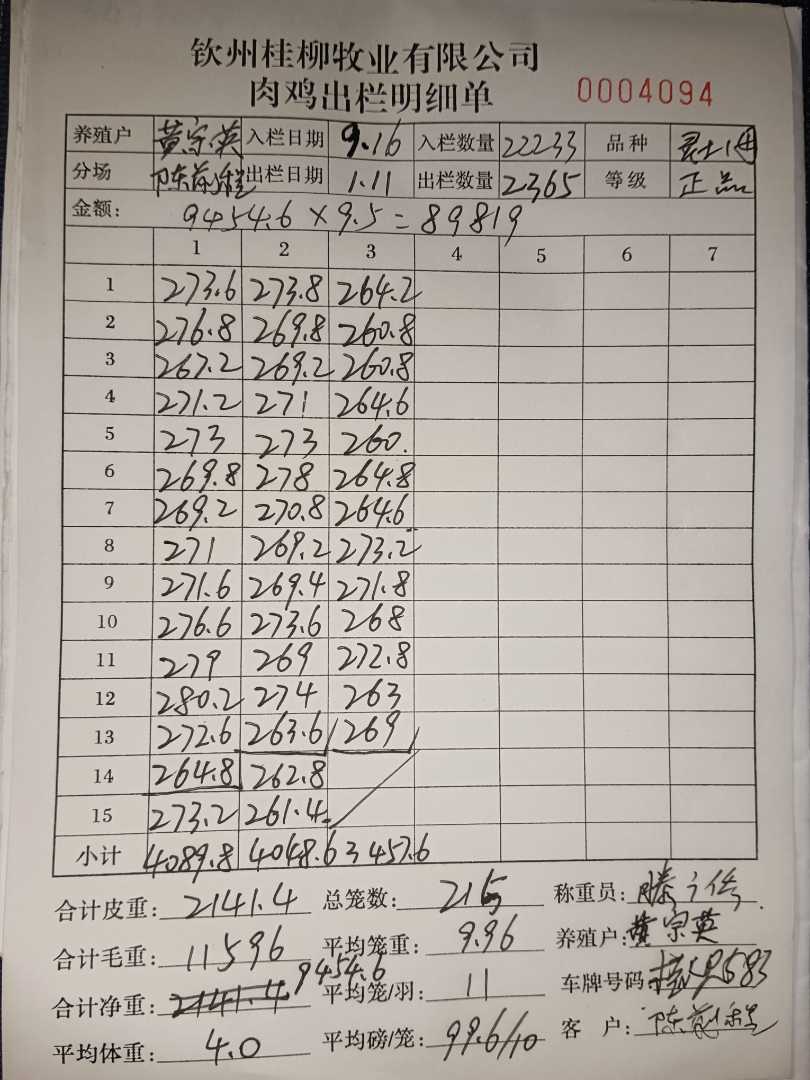 钦州桂柳牧业有限公司
肉鸡出栏明细单 0004094
养殖户 黄宗英 入栏日期 9.16 入栏数量 22233 品种
分场 陈前程 出栏日期 1.11 出栏数量 2365 等级 正品
金额: 9454.6×9.5=89819
1 2 3 4 5 6 7
1 273.6 273.8 264.2
2 276.8 269.8 260.8
3 267.2 269.2 260.8
4 271.2 271 264.6
5 273 273 260.
6 269.8 278 264.8
7 269.2 270.8 264.6
8 271 269.2 273.2
9 271.6 269.4 271.8
10 276.6 273.6 268
11 279 269 272.8
12 280.2 274 263
13 272.6 263.6 269
14 264.8 262.8
15 273.2 261.4
小计 4089.8 4048.6 3457.6
合计皮重: 2141.4 总笼数: 215 称重员:
合计毛重: 11596 平均笼重: 9.96 养殖户: 黄宗英
合计净重: 2141.4 9454.6 平均笼/羽: 11 车牌号码
平均体重: 4.0 平均磅/笼: 99.6/10 客 户: 陈前程